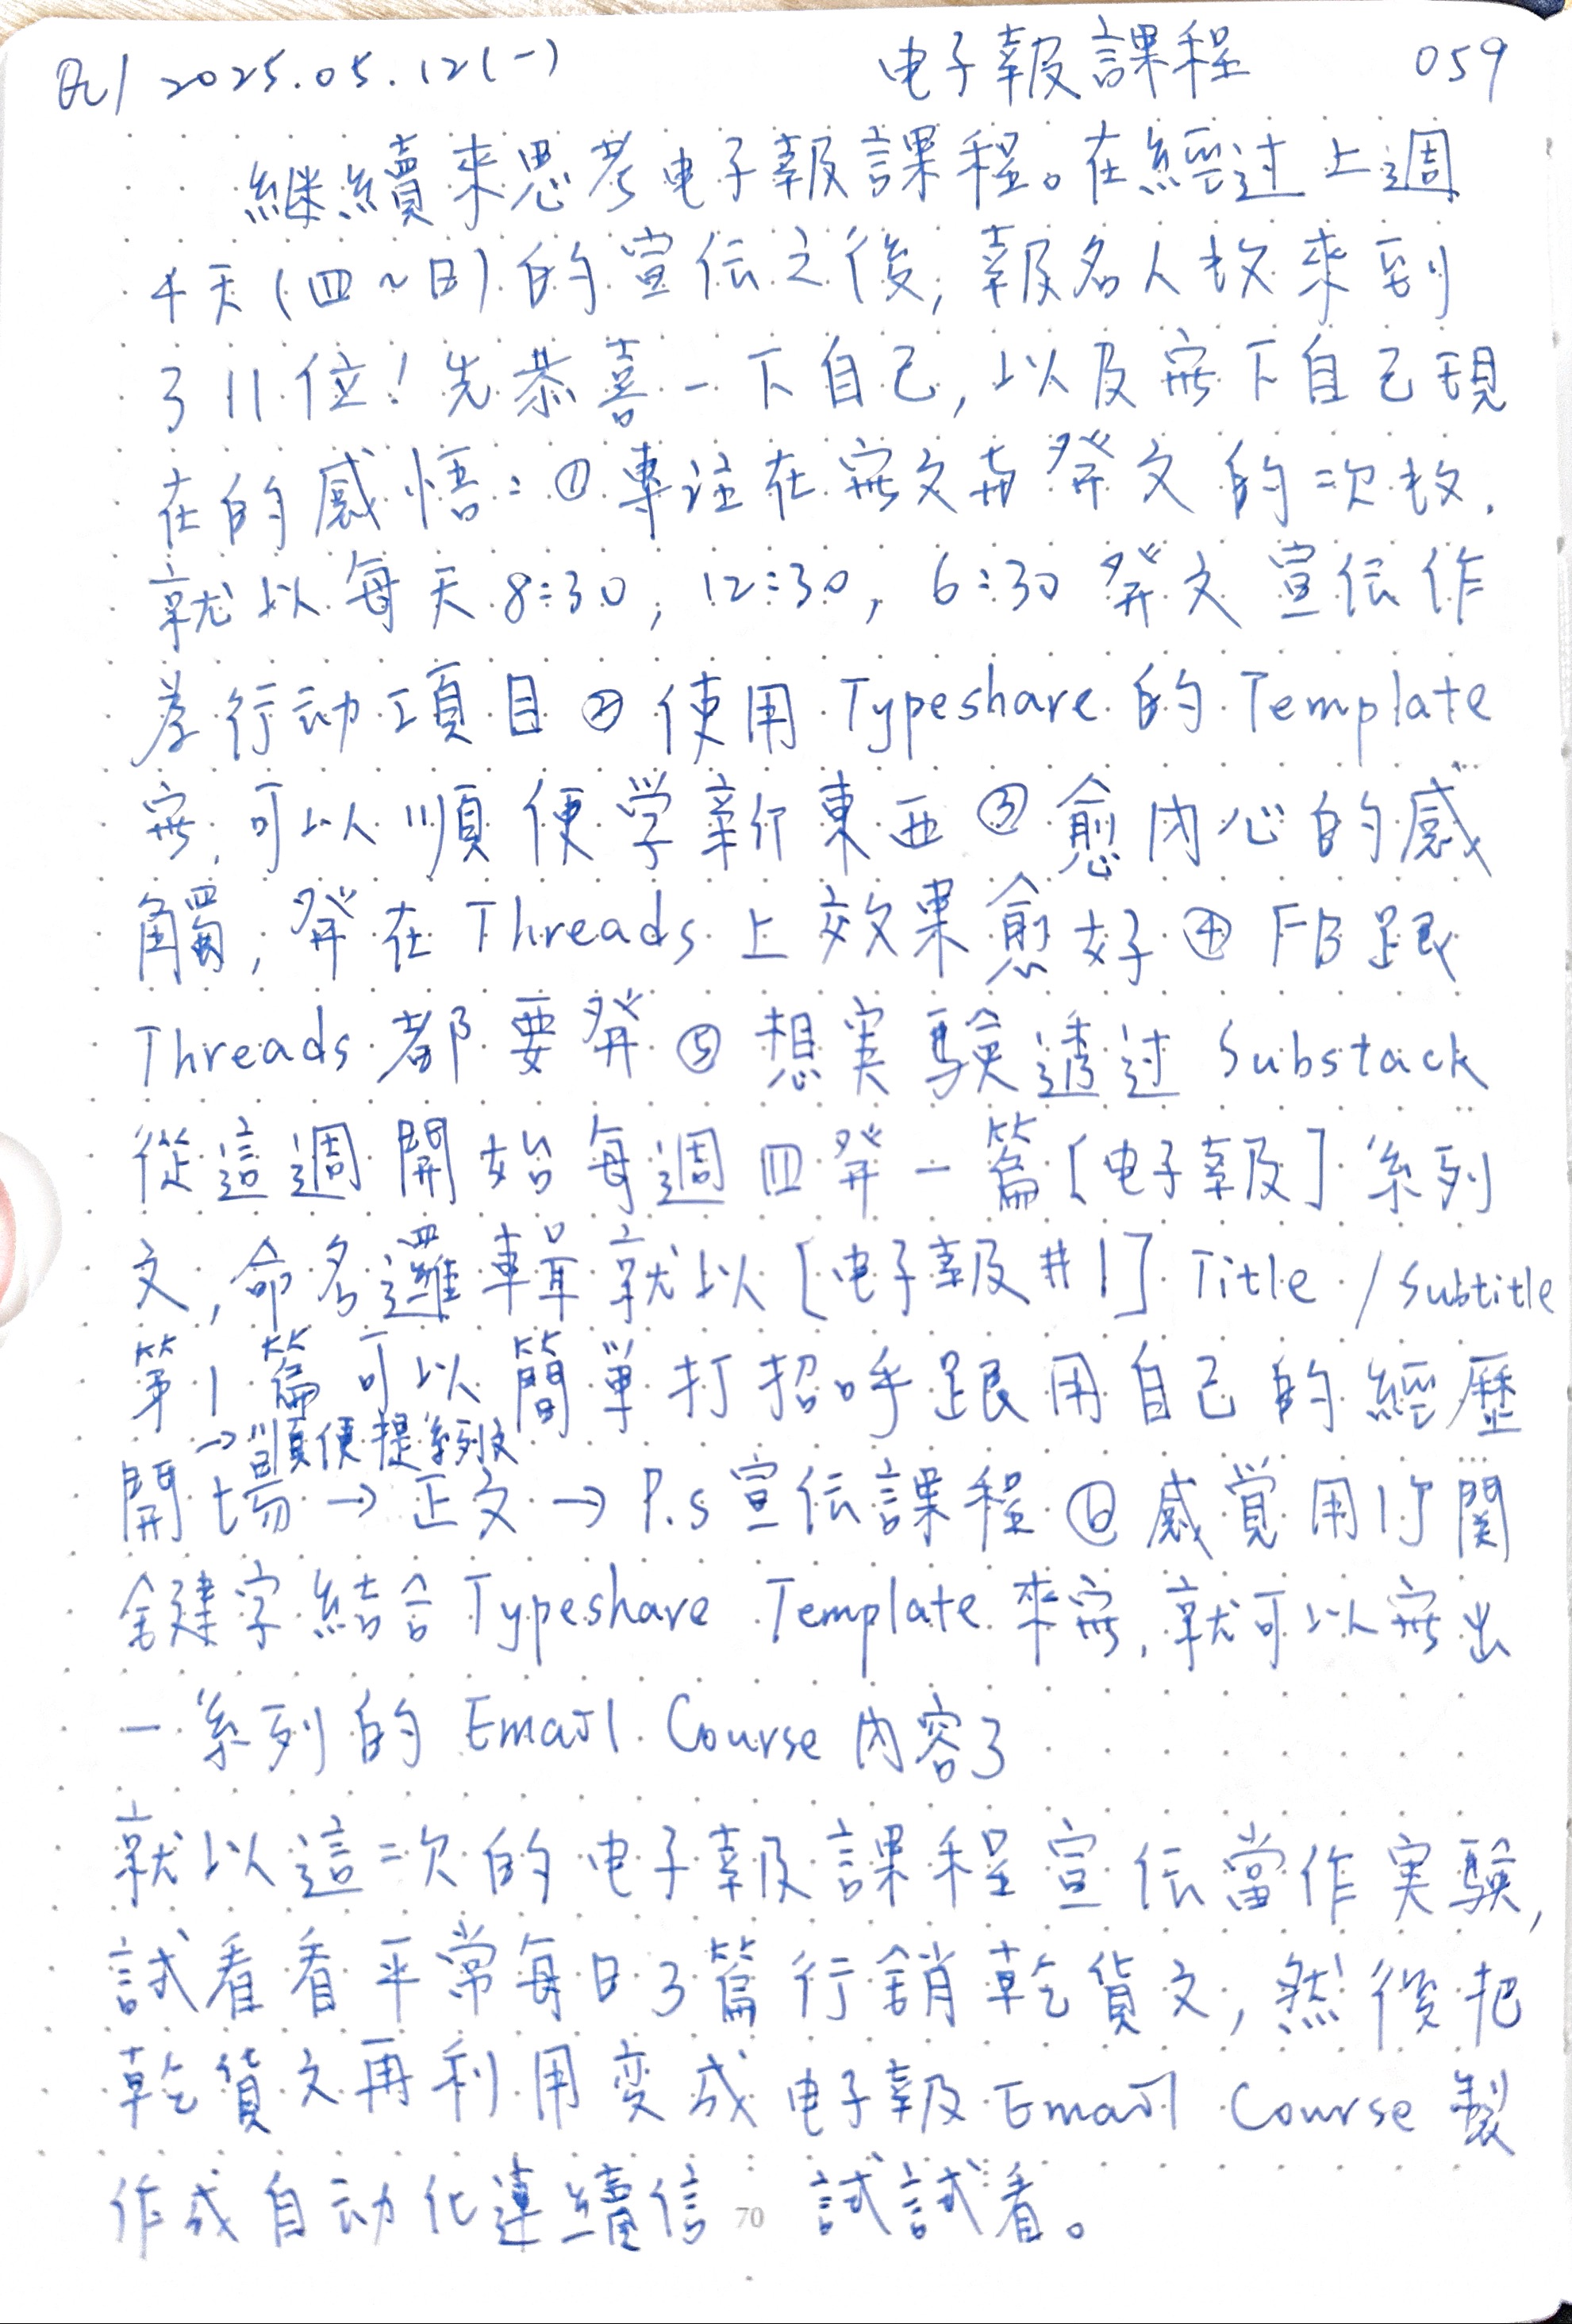 2025.05.12(一) 电子報課程 059
継續來思考电子報課程。在經过上週
4天(四~日)的宣伝之後,報名人数來到
了11位!先恭喜一下自己,以及寫下自己現
在的感悟:①專注在寫文與発文的次数.
就以每天8:30, 12:30, 6:30発文宣伝作
為行动項目②使用Typeshare的Template
寫,可以順便学新東西③愈內心的感
觸,発在Threads上效果愈好④FB跟
Threads都要発⑤想実験透过Substack
從這週開始每週四発一篇[电子報]系列
文,命名邏輯就以[电子報#1] Title / Subtitle
第1篇可以簡單打招呼跟用自己的經歷
→順便提系列文
開場→正文→P.s宣伝課程⑥感覚用1个関
鍵字結合Typeshare Template來寫,就可以寫出
一系列的Email Course內容了
就以這次的电子報課程宣伝當作実験,
試看看平常每日3篇行銷乾貨文,然後把
乾貨文再利用変成电子報Email Course製
作成自动化連續信 試試看。
70